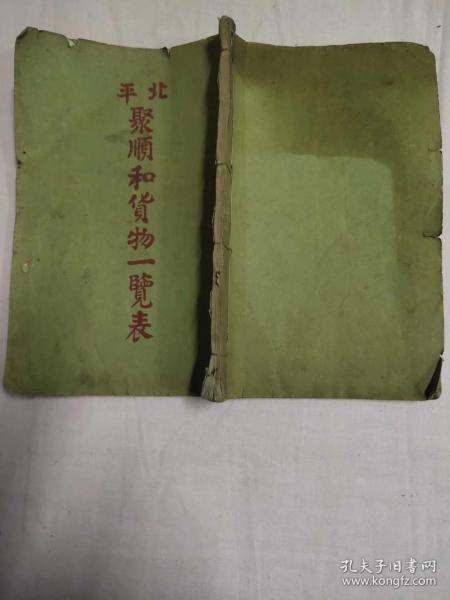 北平
聚順和貨物一覽表
孔夫子旧书网
www.kongfz.com